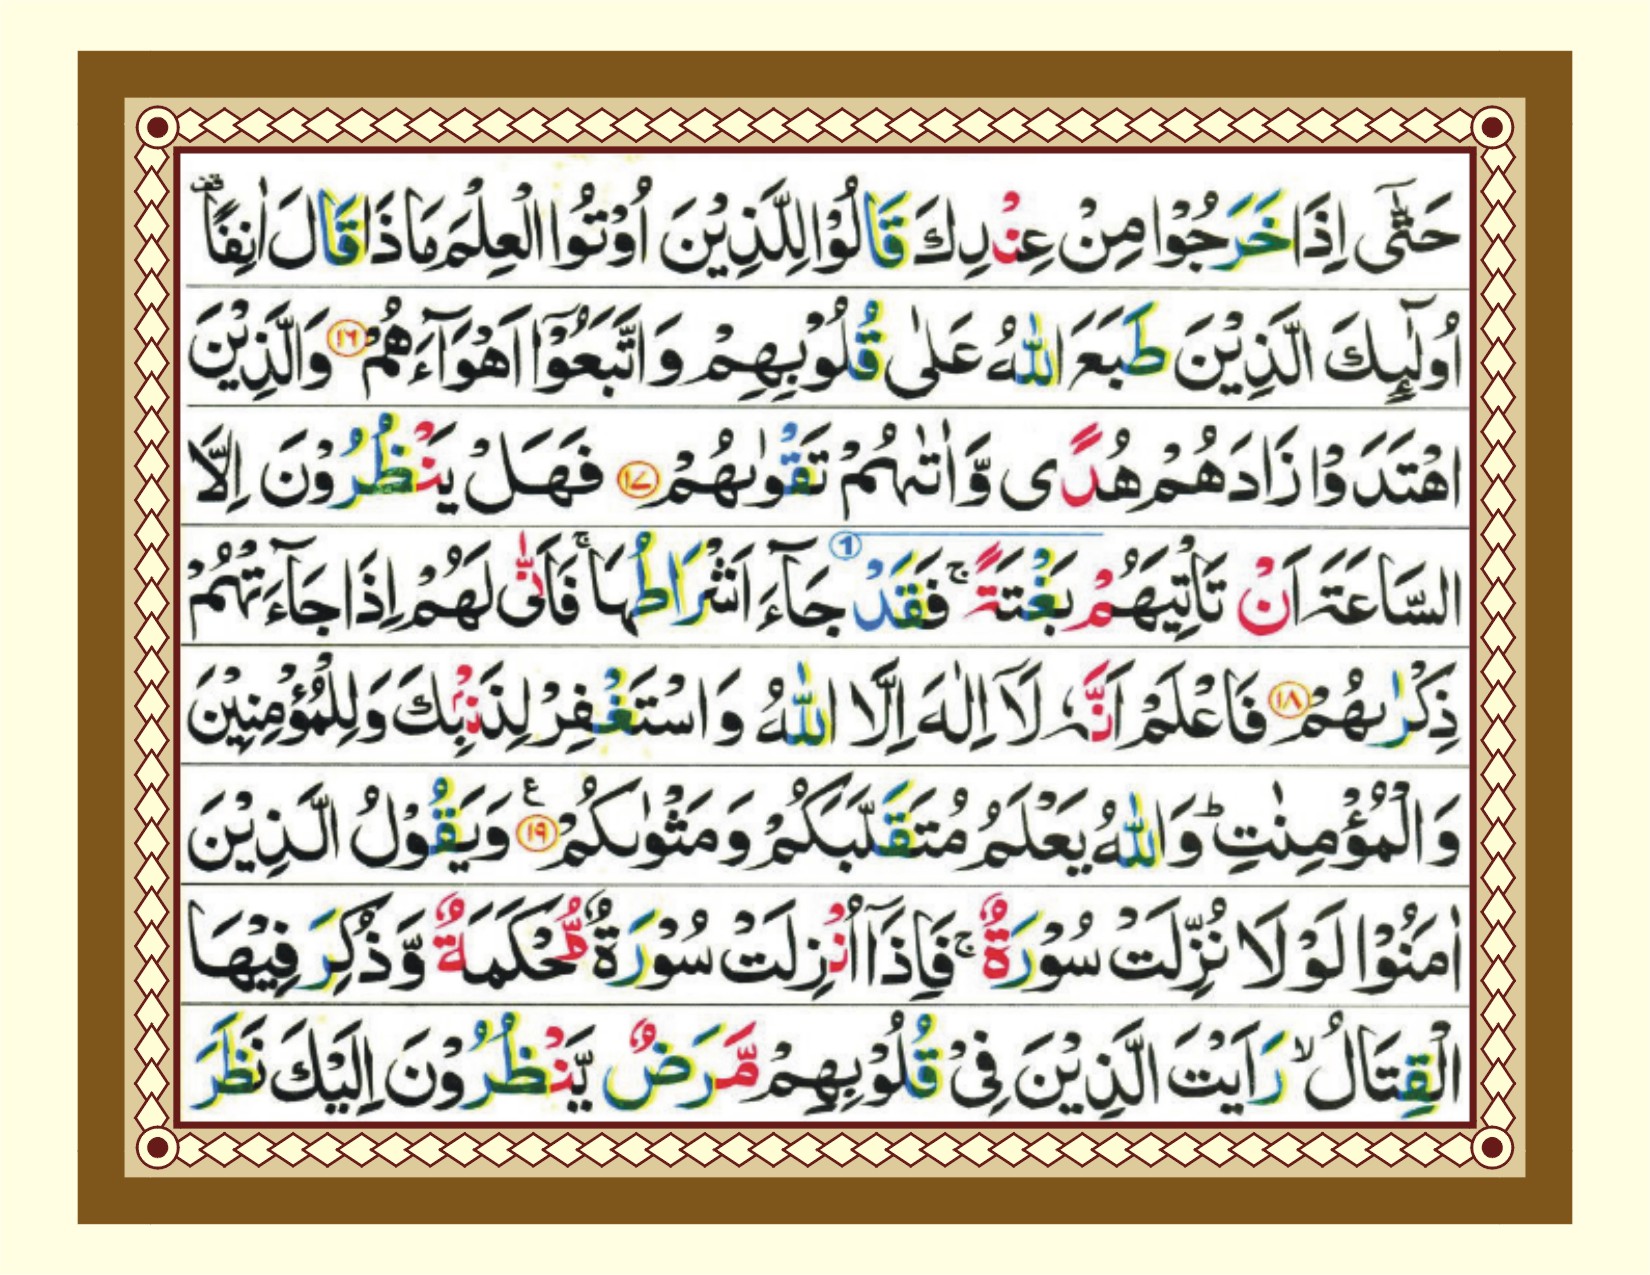 حَتّٰۤی اِذَا خَرَجُوْا مِنْ عِنْدِكَ قَالُوْا لِلَّذِیْنَ اُوْتُوا الْعِلْمَ مَاذَا قَالَ اٰنِفًا ۫
اُولٰٓىِٕكَ الَّذِیْنَ طَبَعَ اللّٰهُ عَلٰی قُلُوْبِهِمْ وَاتَّبَعُوْۤا اَهْوَآءَهُمْ ۝۱۶ وَالَّذِیْنَ
اهْتَدَوْا زَادَهُمْ هُدًی وَّاٰتٰىهُمْ تَقْوٰىهُمْ ۝۱۷ فَهَلْ یَنْظُرُوْنَ اِلَّا
السَّاعَةَ اَنْ تَاْتِیَهُمْ بَغْتَةً ۚ فَقَدْ 1 جَآءَ اَشْرَاطُهَا ۚ فَاَنّٰی لَهُمْ اِذَا جَآءَتْهُمْ
ذِكْرٰىهُمْ ۝۱۸ فَاعْلَمْ اَنَّهٗ لَاۤ اِلٰهَ اِلَّا اللّٰهُ وَاسْتَغْفِرْ لِذَنْۢبِكَ وَلِلْمُؤْمِنِیْنَ
وَالْمُؤْمِنٰتِ ؕ وَاللّٰهُ یَعْلَمُ مُتَقَلَّبَكُمْ وَمَثْوٰىكُمْ ۝۱۹ ع وَیَقُوْلُ الَّذِیْنَ
اٰمَنُوْا لَوْلَا نُزِّلَتْ سُوْرَةٌ ۚ فَاِذَاۤ اُنْزِلَتْ سُوْرَةٌ مُّحْكَمَةٌ وَّذُكِرَ فِیْهَا
الْقِتَالُ ۙ رَاَیْتَ الَّذِیْنَ فِیْ قُلُوْبِهِمْ مَّرَضٌ یَّنْظُرُوْنَ اِلَیْكَ نَظَرَ